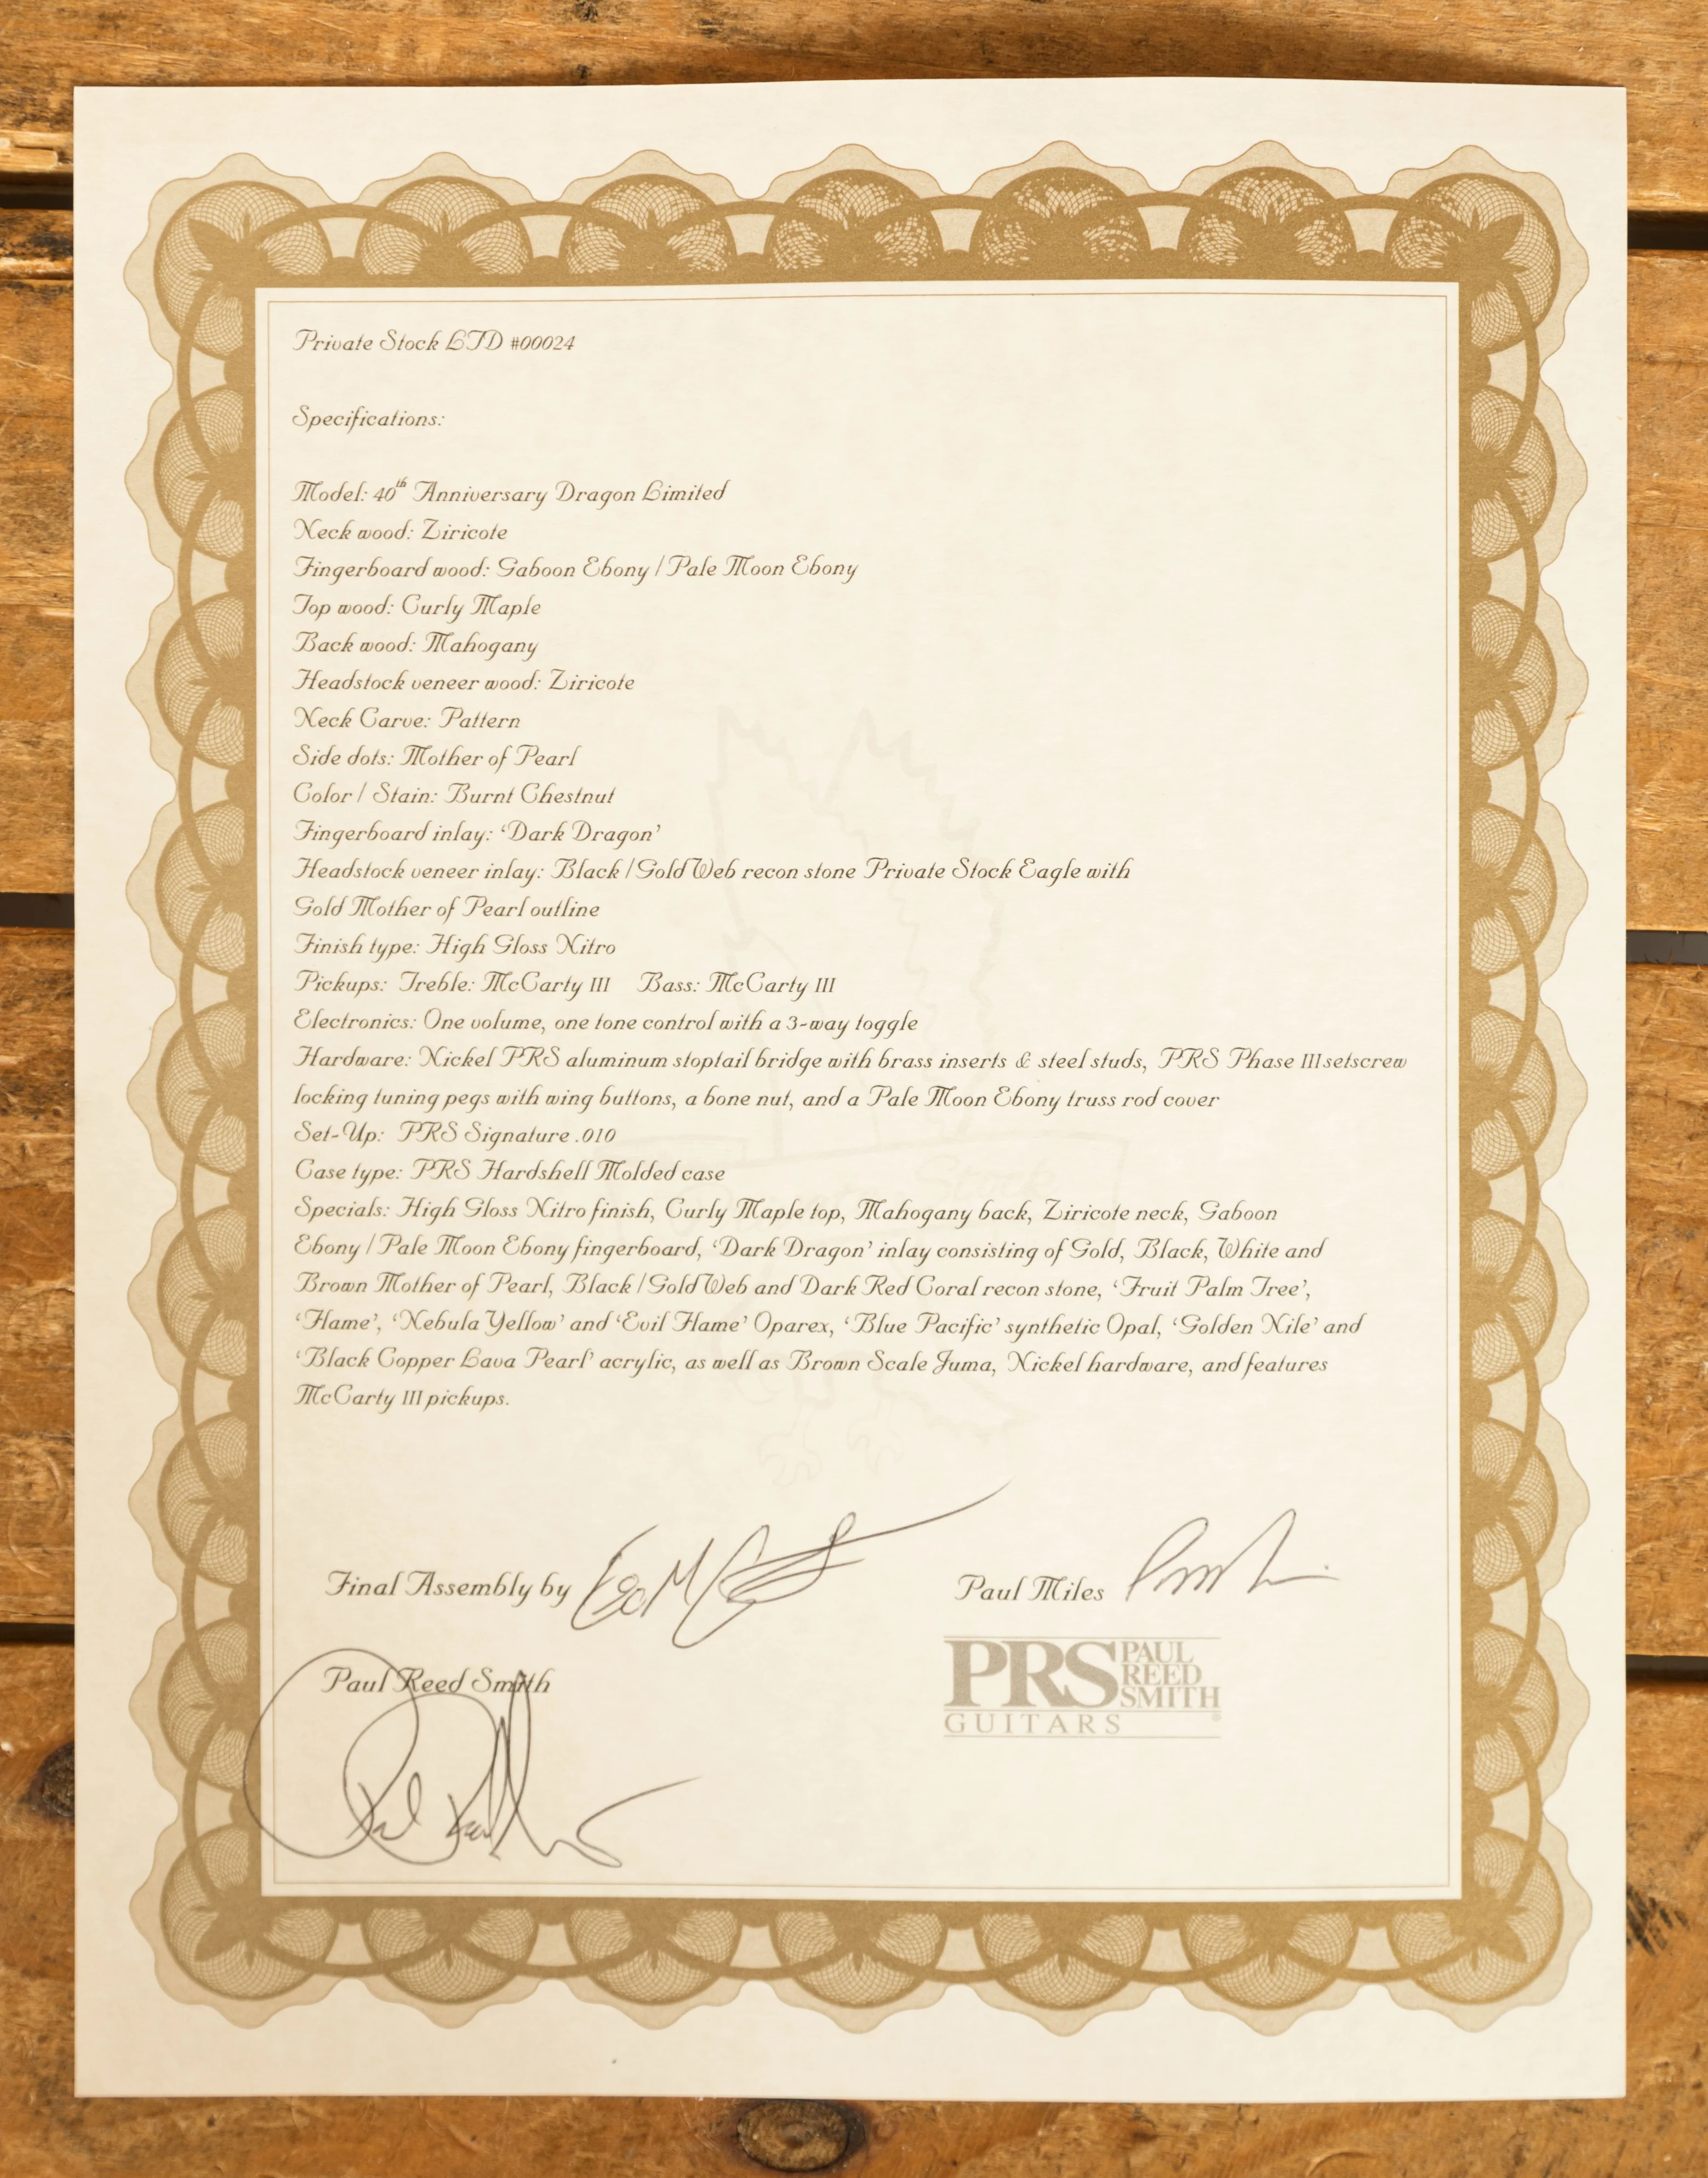 Private Stock LTD #00024
Specifications:
Model: 40th Anniversary Dragon Limited
Neck wood: Ziricote
Fingerboard wood: Gaboon Ebony / Pale Moon Ebony
Top wood: Curly Maple
Back wood: Mahogany
Headstock veneer wood: Ziricote
Neck Carve: Pattern
Side dots: Mother of Pearl
Color / Stain: Burnt Chestnut
Fingerboard inlay: ‘Dark Dragon’
Headstock veneer inlay: Black / Gold Web recon stone Private Stock Eagle with
Gold Mother of Pearl outline
Finish type: High Gloss Nitro
Pickups: Treble: McCarty III Bass: McCarty III
Electronics: One volume, one tone control with a 3-way toggle
Hardware: Nickel PRS aluminum stoptail bridge with brass inserts & steel studs, PRS Phase III setscrew
locking tuning pegs with wing buttons, a bone nut, and a Pale Moon Ebony truss rod cover
Set-Up: PRS Signature .010
Case type: PRS Hardshell Molded case
Specials: High Gloss Nitro finish, Curly Maple top, Mahogany back, Ziricote neck, Gaboon
Ebony / Pale Moon Ebony fingerboard, ‘Dark Dragon’ inlay consisting of Gold, Black, White and
Brown Mother of Pearl, Black / Gold Web and Dark Red Coral recon stone, ‘Fruit Palm Tree’,
‘Flame’, ‘Nebula Yellow’ and ‘Evil Flame’ Oparex, ‘Blue Pacific’ synthetic Opal, ‘Golden Nile’ and
‘Black Copper Lava Pearl’ acrylic, as well as Brown Scale Juma, Nickel hardware, and features
McCarty III pickups.
Final Assembly by
Paul Miles
Paul Reed Smith
PRS PAUL REED SMITH
GUITARS ®